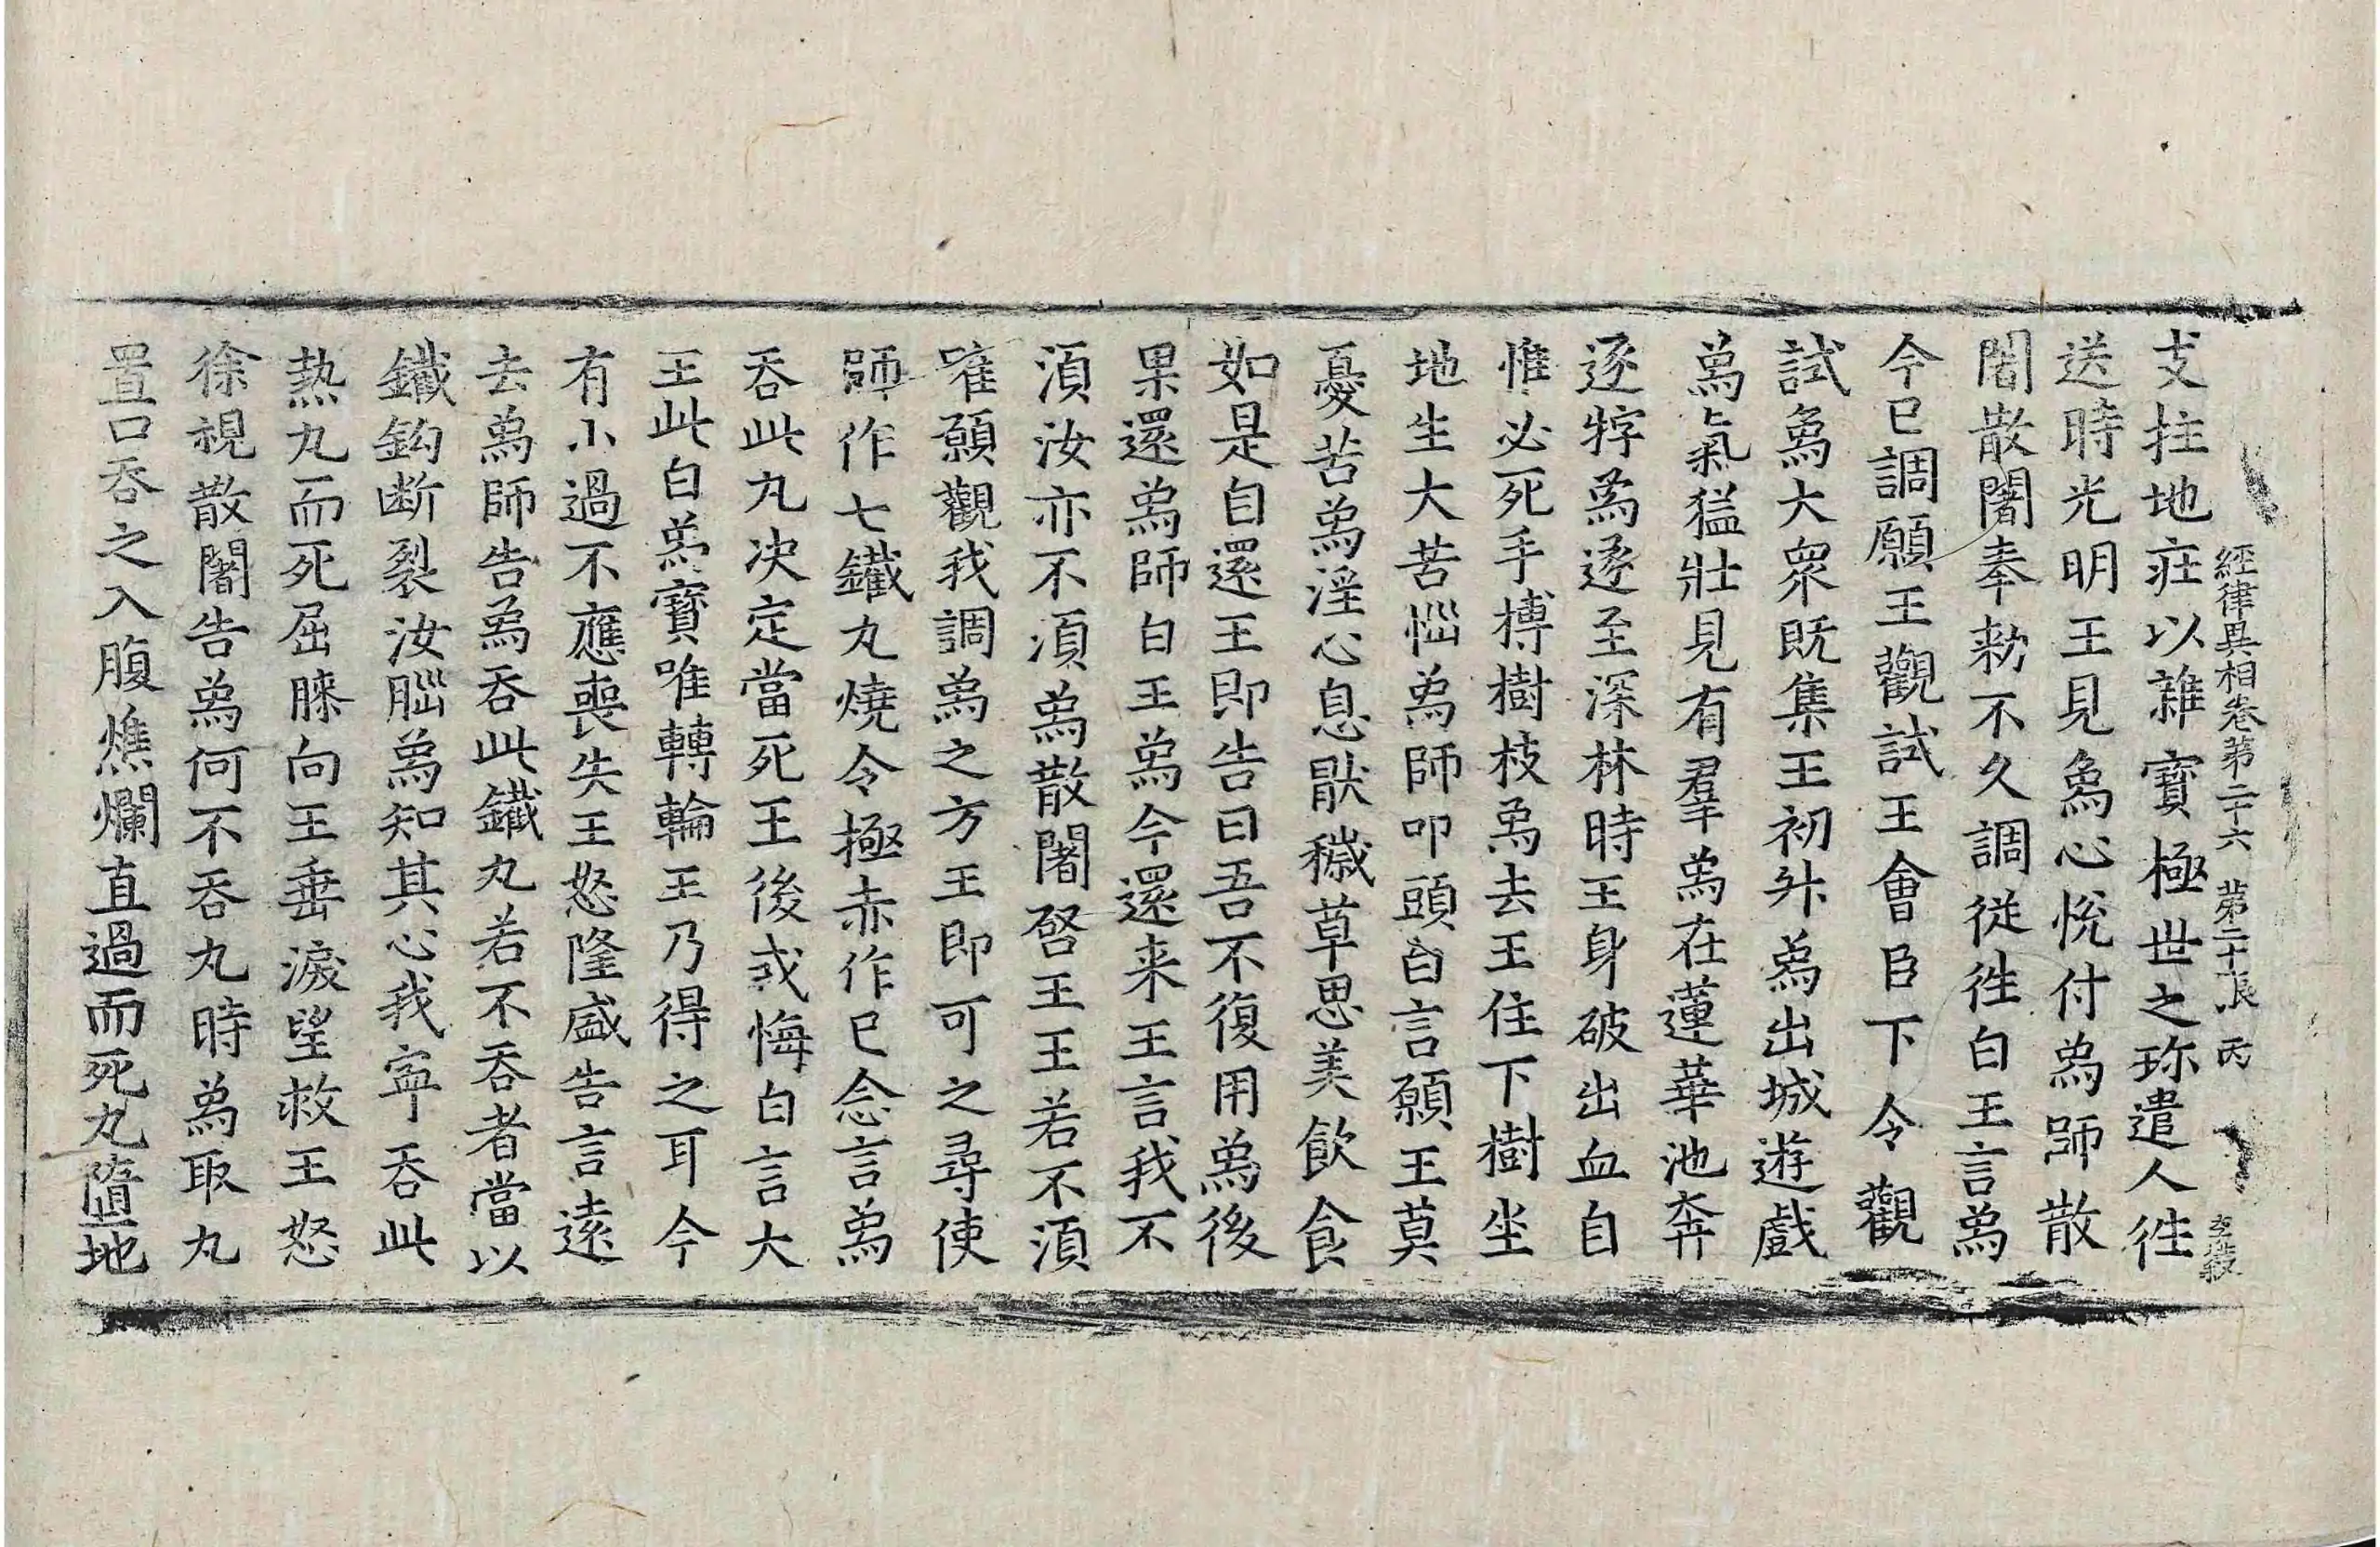 經律異相卷第二十六　第二十張　丙
支拄地疰以雜寶極世之珎遣人徃
送時光明王見象心恱付象師散
闍散闍奉勑不久調従徃白王言象
今已調願王觀試王會臣下令觀
試象大衆既集王初外象出城遊戲
象氣猛壯見有羣象在蓮華池奔
逐牸象遂至深林時王身破出血自
惟必死手搏樹枝象去王住下樹坐
地生大苦惱象師叩頭白言願王莫
憂苦象淫心息猒穢草思美飲食
如是自還王即告曰吾不復用象後
果還象師白王象今還来王言我不
湏汝亦不湏象散闍啓王王若不湏
唯願觀我調象之方王即可之尋使
師作七鐵丸燒令極赤作已念言象
吞此丸决定當死王後或悔白言大
王此白象寳唯轉輪王乃得之耳今
有小過不應喪失王怒隆盛告言逺
去象師告象吞此鐵丸若不吞者當以
鐵鈎断裂汝腦象知其心我寜吞此
熱丸而死屈膝向王垂淚望救王怒
徐視散闍告象何不吞丸時象取丸
置口吞之入腹燋爛直過而死丸墮地